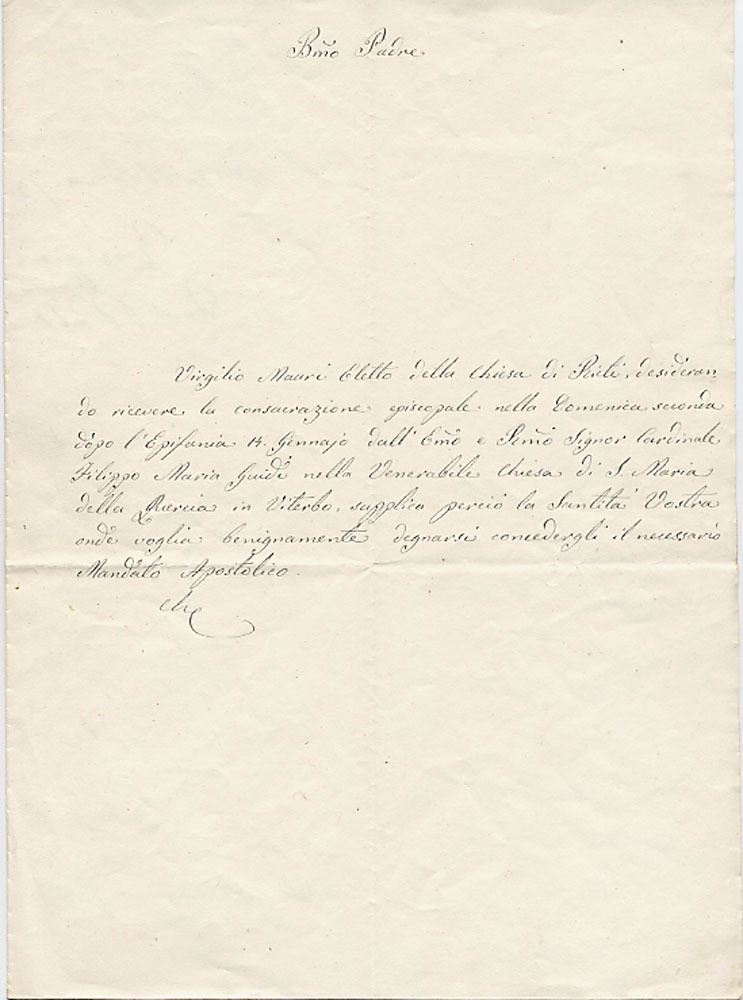 Bm̃o Padre
Virgilio Mauri Eletto della Chiesa di Rieti, desideran
do ricevere la consacrazione episcopale nella Domenica seconda
dopo l'Epifania 14. Gennajo dall' Em̃o e Rem̃o Signor Cardinale
Filippo Maria Guidi nella Venerabile Chiesa di S. Maria
della Quercia in Viterbo, supplica perciò la Santità Vostra
onde voglia benignamente degnarsi concedergli il necessario
Mandato Apostolico.
Che